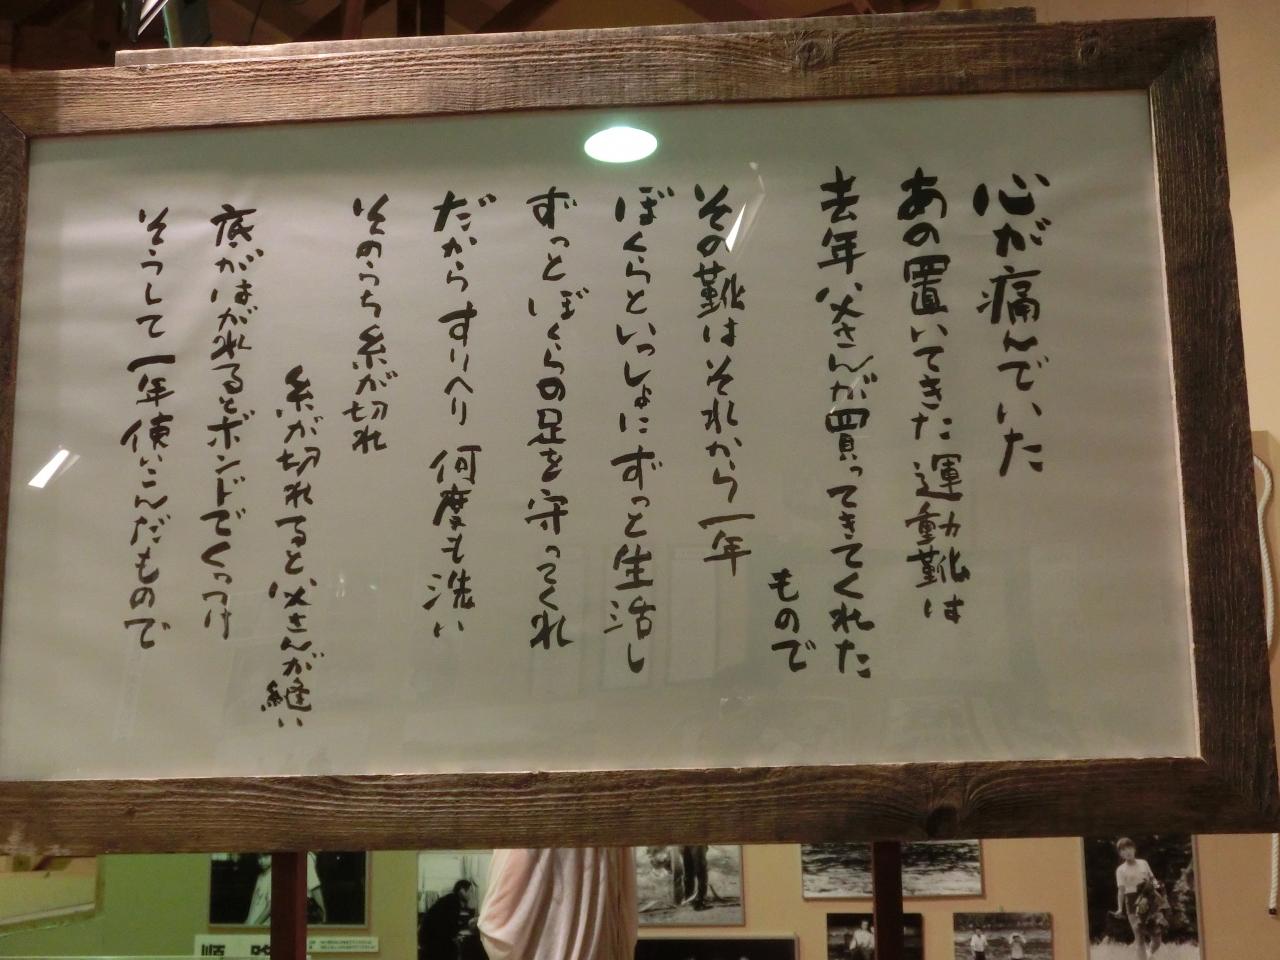 心が痛んでいた
あの置いてきた運動靴は
去年父さんが買ってきてくれた
もので
その靴はそれから一年
ぼくらといっしょにずっと生活し
ずっとぼくらの足を守ってくれ
だからすりへり 何度も洗い
そのうち糸が切れ
糸が切れると父さんが縫い
底がはがれるとボンドでくっつけ
そうして一年使いこんだもので
順 路